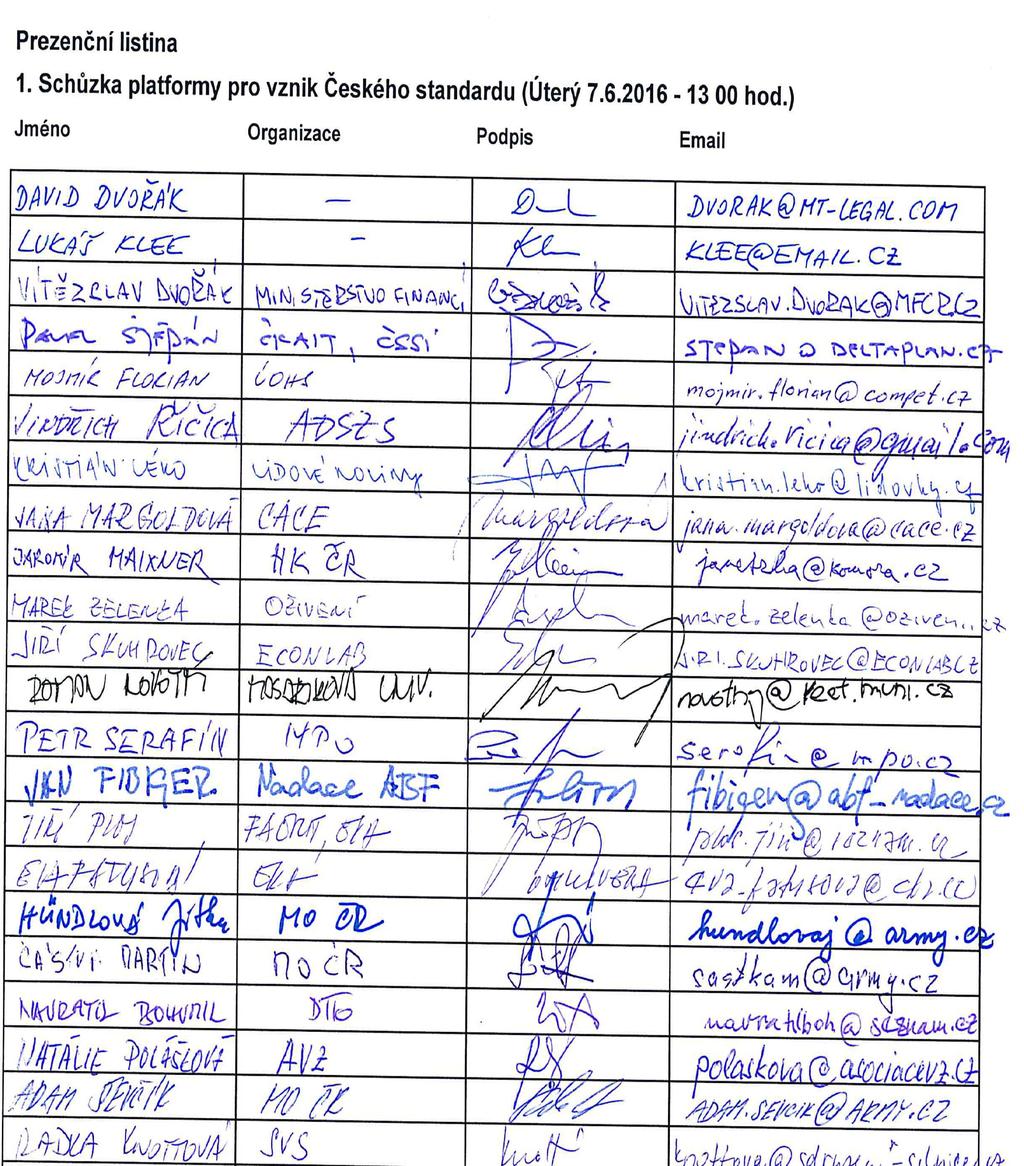 Prezenční listina
1. Schůzka platformy pro vznik Českého standardu (Úterý 7.6.2016 - 13 00 hod.)
Jméno Organizace Podpis Email
DAVID DVOŘÁK — DVORAK@MT-LEGAL.COM
LUKÁŠ KLEE – KLEE@EMAIL.CZ
VÍTĚZSLAV DVOŘÁK MINISTERSTVO FINANCÍ VITEZSLAV.DVORAK@MFCR.CZ
PAVEL ŠTĚPÁN ČKAIT, ČSSI STEPAN @ DELTAPLAN.CZ
MOJMÍR FLORIAN ÚOHS mojmir.florian@compet.cz
JINDŘICH ŘIČICA ADSZS jindrich.ricica@gmail.com
KRISTIÁN LÉKO LIDOVÉ NOVINY kristian.leko@lidovky.cz
JANA MARGOLDOVÁ CACE Margoldová jana.margoldova@cace.cz
JAROMÍR MAIXNER HK ČR
MAREK ZELENKA OŽIVENÍ marek.zelenka@oziveni.cz
JIŘÍ SKUHROVEC ECONLAB JIRI.SKUHROVEC@ECONLAB.CZ
ROMAN NOVOTNÝ MASARYKOVA UNIV. novotny@rect.muni.cz
PETR SERAFÍN MPO serafin@mpo.cz
JAN FIBIGER Nadace ABF fibiger@abf-nadace.cz
JIŘÍ
HÜNDLOVÁ Jitka MO ČR hundlovaj@army.cz
MARTIN MO ČR sastkam@army.cz
NAVRÁTIL BOHUMIL navratilboh@seznam.cz
NATÁLIE POLÁŠKOVÁ AVZ polaskova@asociacevz.cz
ADAM ŠEVČÍK MO ČR ADAM.SEVCIK@ARMY.CZ
RADKA KNOTTOVÁ SVS